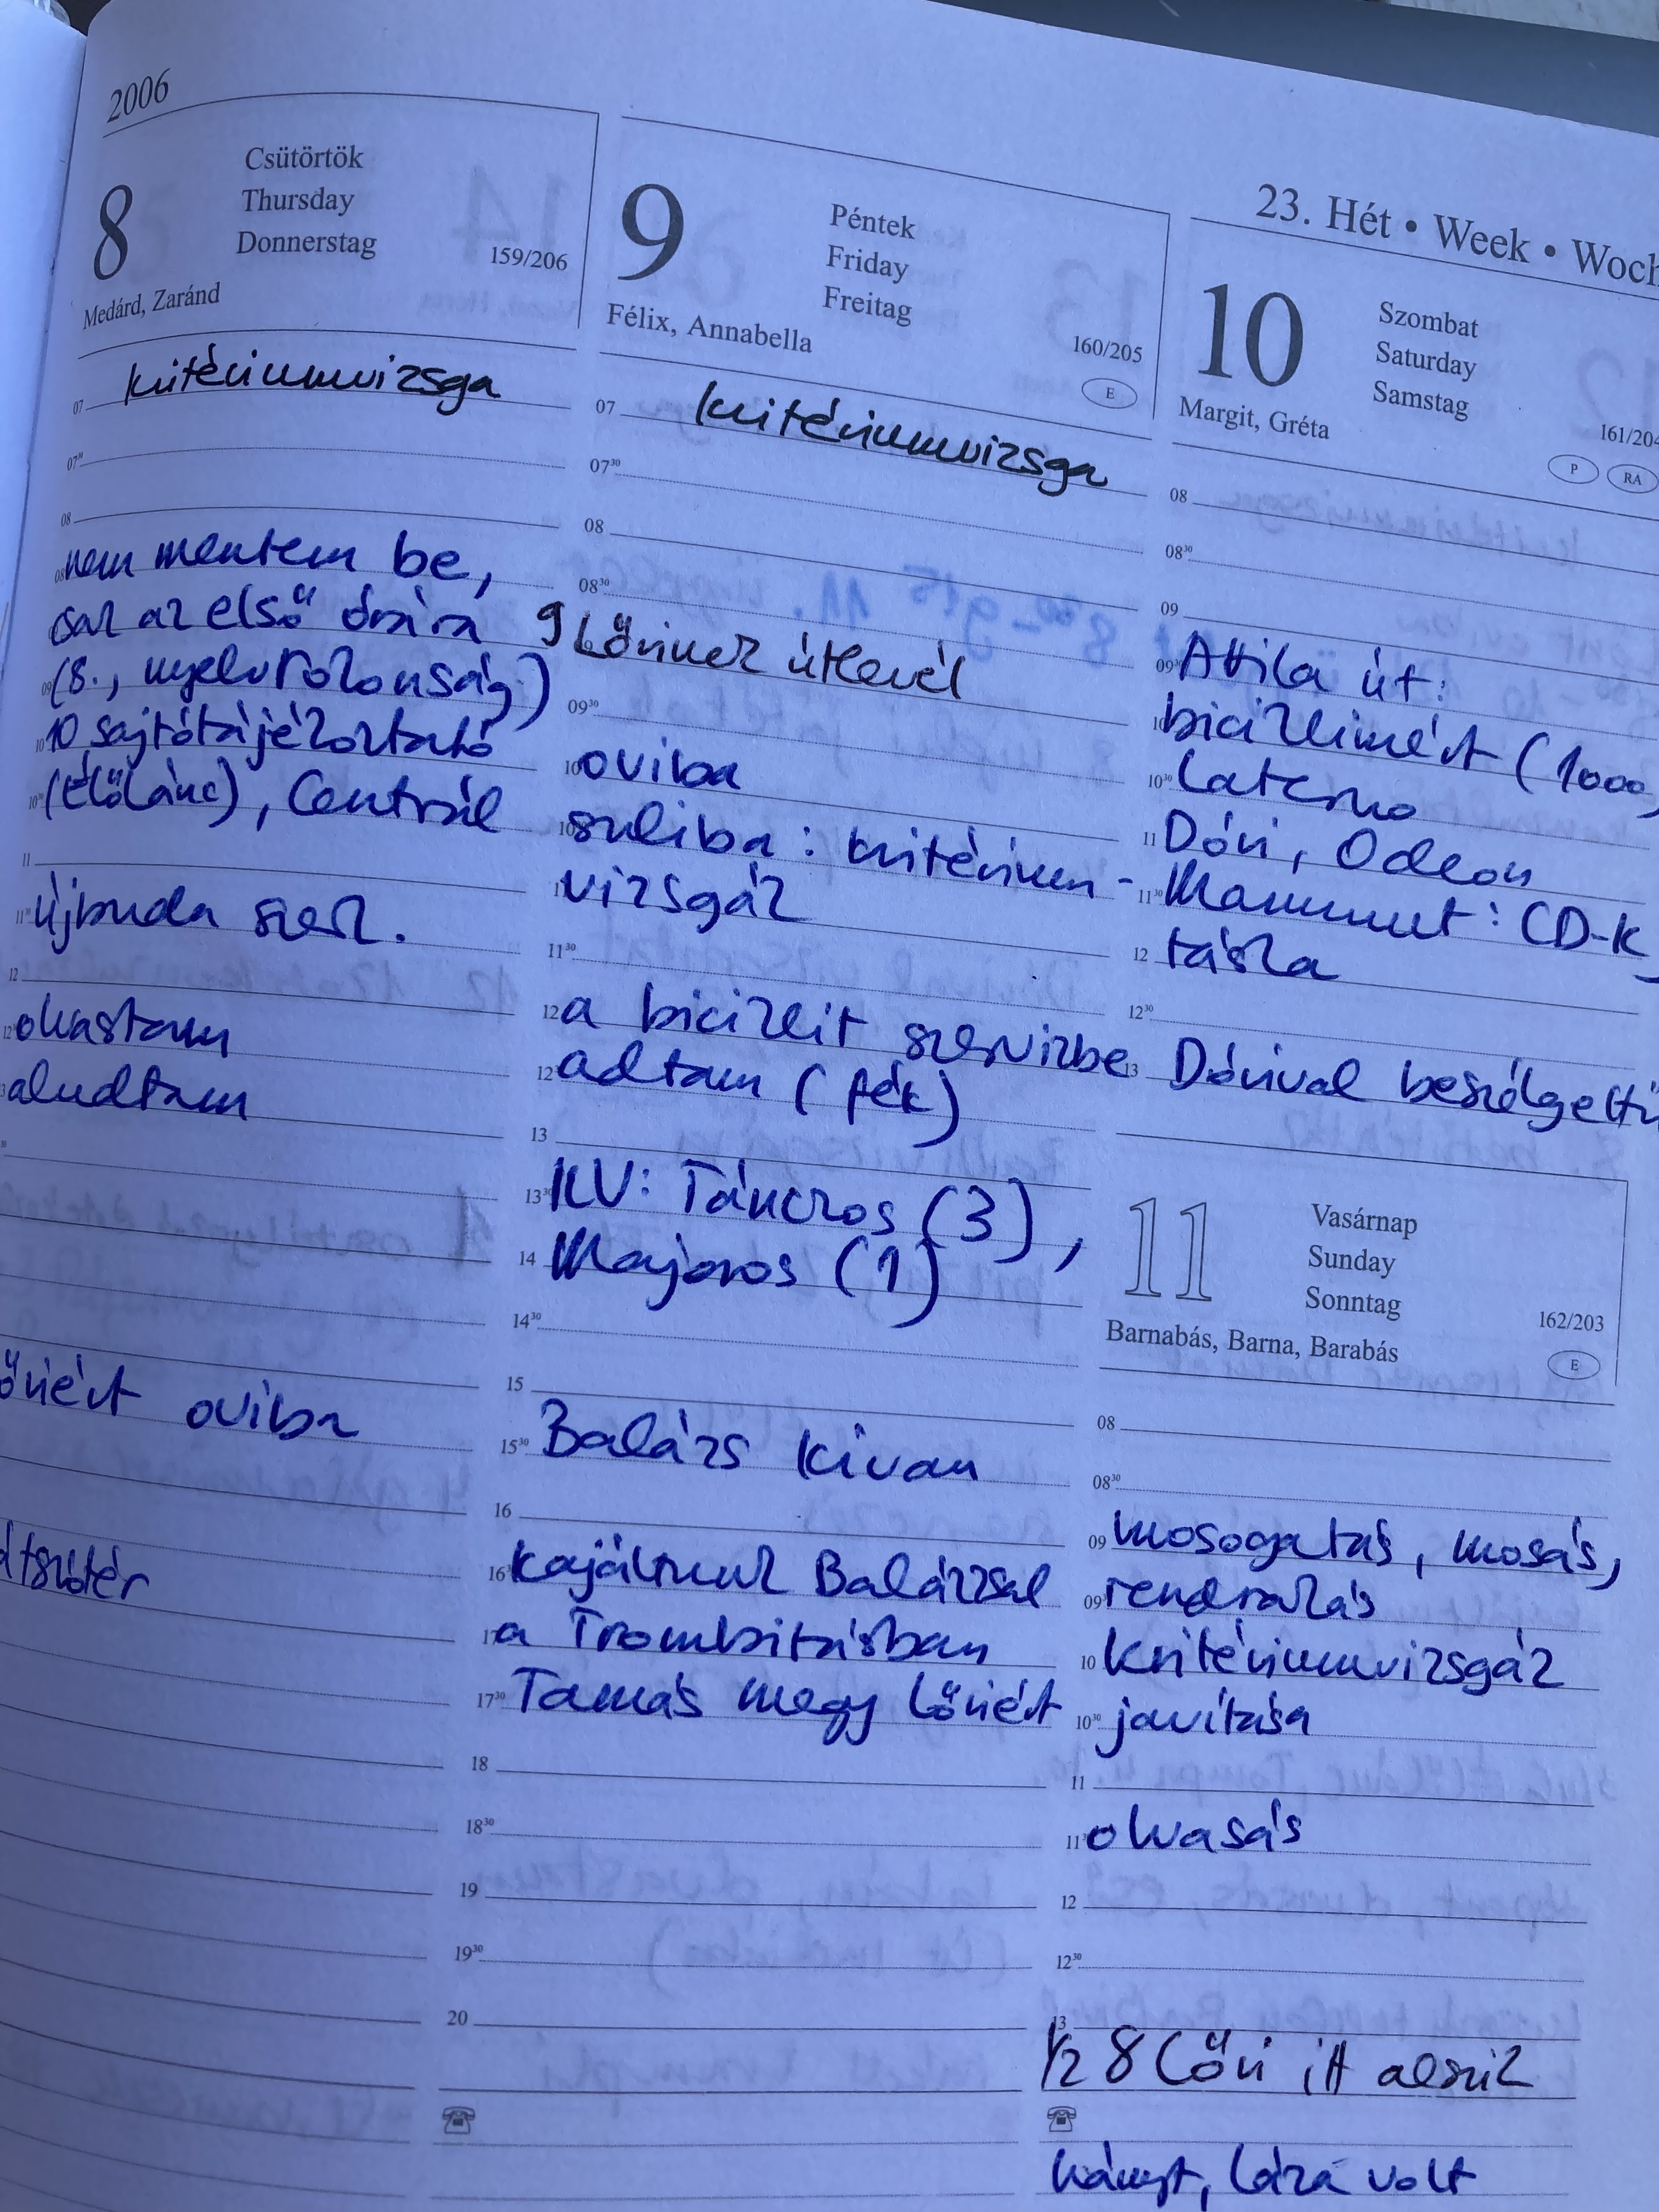 2006
23. Hét • Week • Woch
8
Csütörtök
Thursday
Donnerstag
159/206
Medárd, Zaránd
kritériumvizsga
07
0730
08
nem mentem be,
csak az első órára
(8., nyelvrokonság)
10 sajtótájékoztató
(Élőlánc), Centrál
11
Újbuda szerk.
12
olvastam
aludtam
őriért oviba
játszótér
9
Péntek
Friday
Freitag
160/205
Félix, Annabella
E
07
kritériumvizsga
0730
08
0830
9 Lőrinek útlevél
0930
10 oviba
suliba: kritérium-
vizsgák
1130
12 a biciklit szervizbe
adtam (fék)
13
1330 KV: Táncros (3),
14 Majoros (1)
1430
15
1530 Balázs kivan
16
kajáltunk Balázzsal
a Trombitásban
1730 Tamás megy Lőriért
18
1830
19
1930
20
10
Szombat
Saturday
Samstag
161/204
Margit, Gréta
P RA
08
0830
09
Attila út:
biciklimért (1000)
1030 Laterna
11 Dóri, Odeon
1130 Mammut: CD-k,
12 táska
1230
13 Dórival beszélgettü
11
Vasárnap
Sunday
Sonntag
162/203
Barnabás, Barna, Barabás
E
08
0830
09 mosogatás, mosás,
rendrakás
10 kritériumvizsgák
1030 javítása
11
olvasás
12
1230
13
1/2 8 Lőri itt alszik
hányt, láza volt